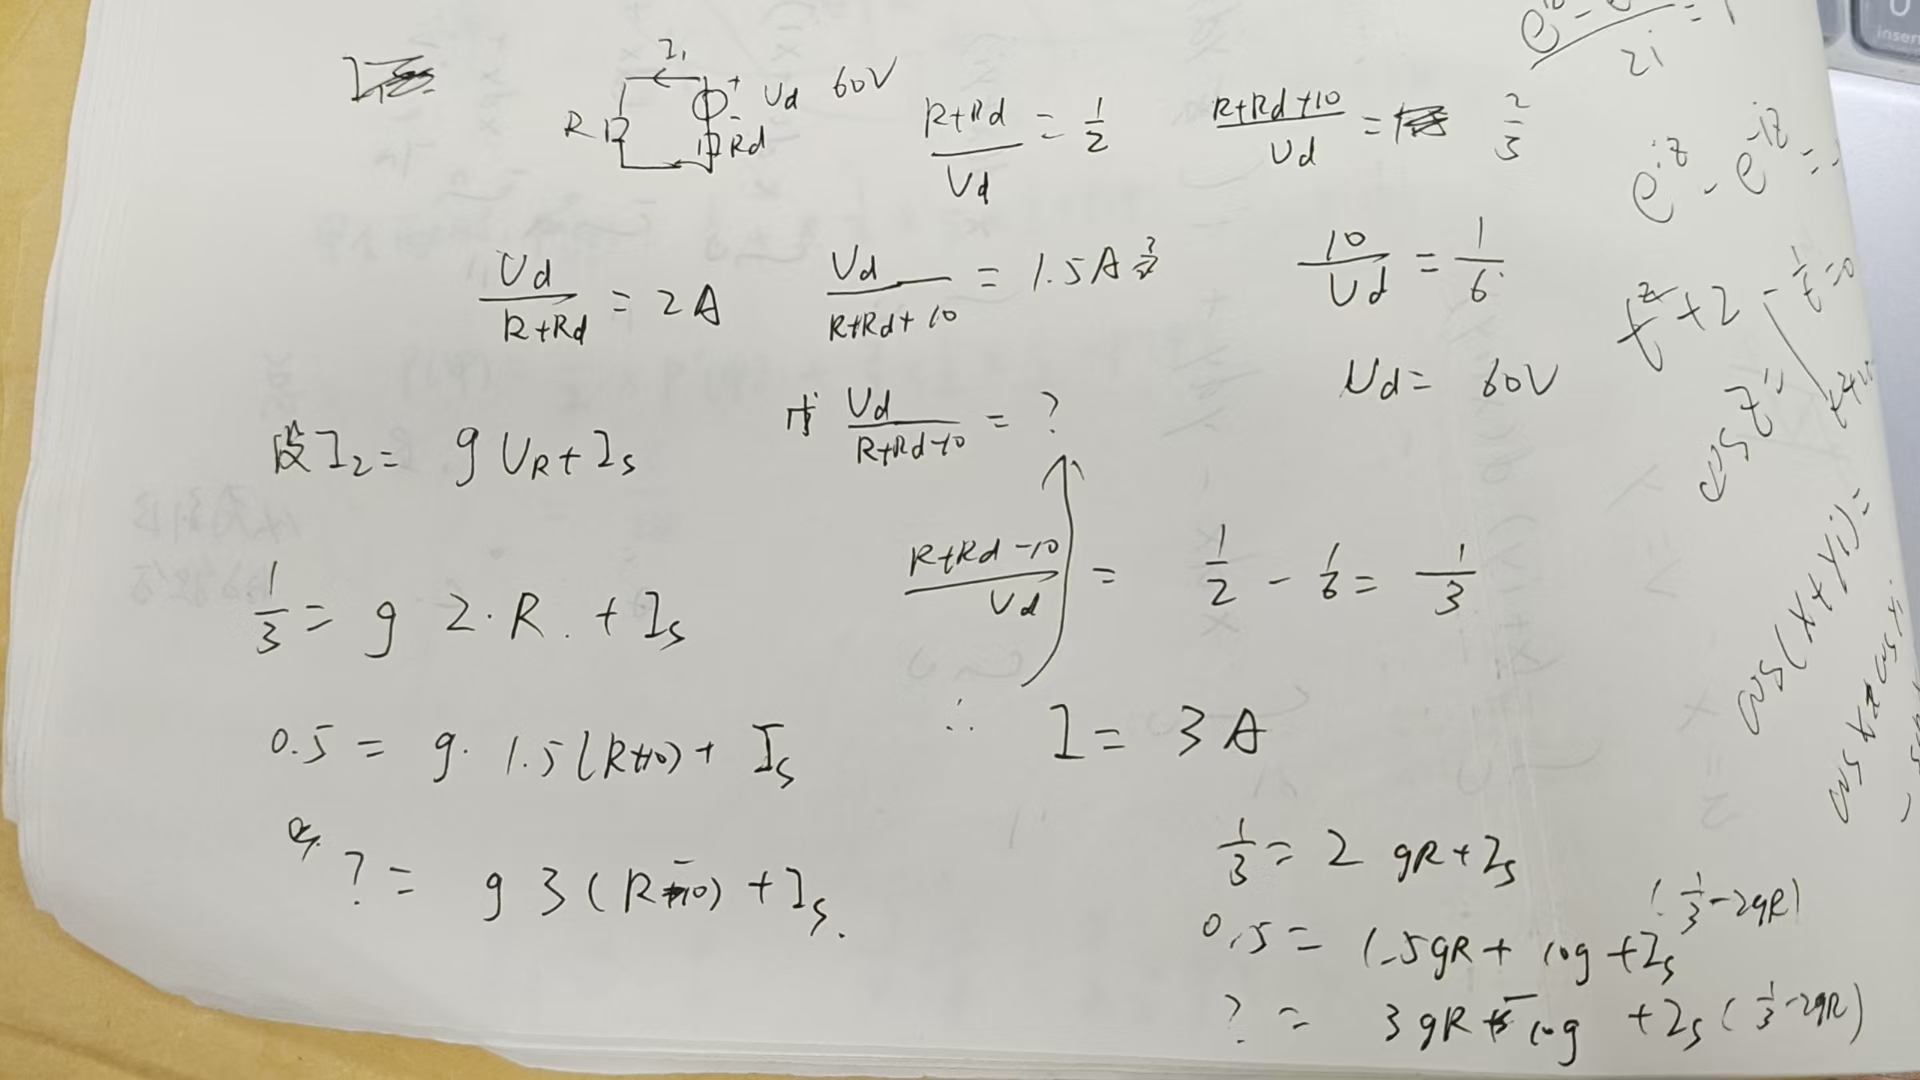 I₁
R
+
-
Ud 60V
Rd
(R+Rd)/Ud = 1/2
(R+Rd+10)/Ud = 2/3
Ud/(R+Rd) = 2A
Ud/(R+Rd+10) = 1.5A 3/2
10/Ud = 1/6
Ud = 60V
设I₂ = gUR+Is
Ud/(R+Rd-10) = ?
1/3 = g 2·R. + Is
(R+Rd-10)/Ud = 1/2 - 1/6 = 1/3
0.5 = g· 1.5(R+10)+ Is
∴ I = 3A
? = g 3(R-10)+Is.
1/3 = 2 gR+Is
(1/3-2gR)
0.5 = 1.5gR+ 10g +Is
? = 3gR - 10g +Is (1/3-2gR)
2i
e^iz - e^-iz =
cos z
cos(x+yi)=